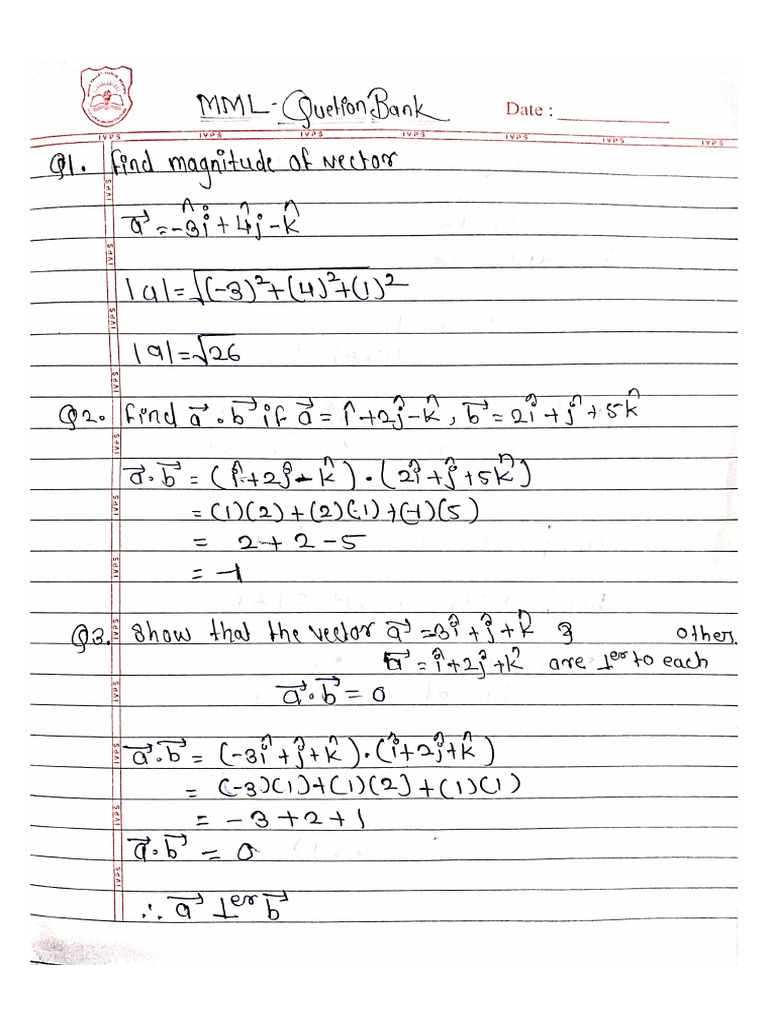 MML - Quetion Bank Date : ____________
IVPS IVPS IVPS IVPS IVPS IVPS IVPS
Q1. Find magnitude of vector
a⃗ = -3î + 4ĵ - k̂
|a| = √(-3)² + (4)² + (1)²
|a| = √26
Q2. Find a⃗ . b⃗ if a⃗ = î + 2ĵ - k̂ , b⃗ = 2î + ĵ + 5k̂
a⃗ . b⃗ = (î + 2ĵ - k̂) . (2î + ĵ + 5k̂)
= (1)(2) + (2)(-1) + (-1)(5)
= 2 + 2 - 5
= -1
Q3. Show that the vector a⃗ = -3î + ĵ + k̂ & other.
a⃗ = î + 2ĵ + k̂ are ⊥er to each
a⃗ . b⃗ = 0
a⃗ . b⃗ = (-3î + ĵ + k̂) . (î + 2ĵ + k̂)
= (-3)(1) + (1)(2) + (1)(1)
= -3 + 2 + 1
a⃗ . b⃗ = 0
∴ a⃗ ⊥er b⃗